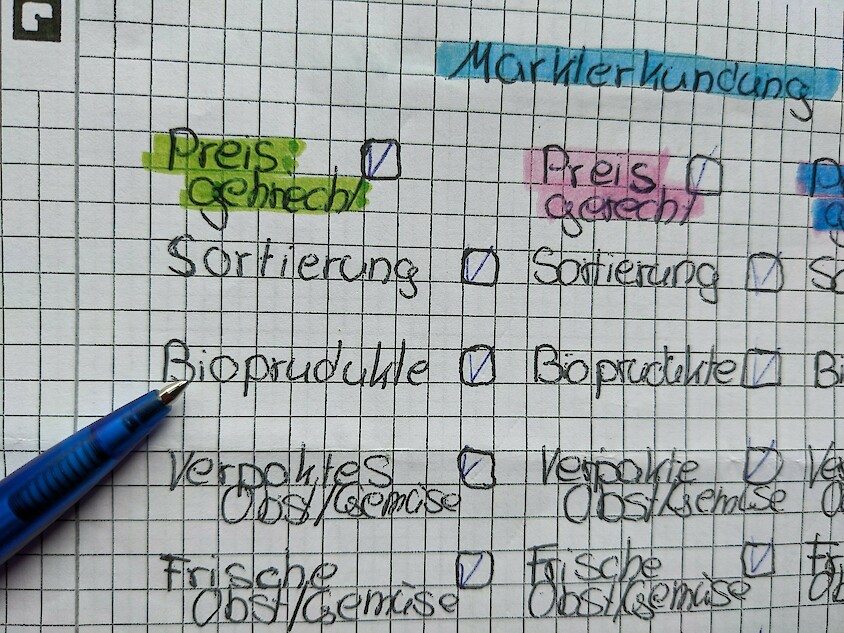 Markterkundung
Preis
gehrecht
Sortierung
Bioprudukte
Verpaktes
Obst/Gemüse
Frische
Obst/Gemüse
Preis
gerecht
Sortierung
Bioprudukte
Verpakte
Obst/Gemüse
Frische
Obst/Gemüse